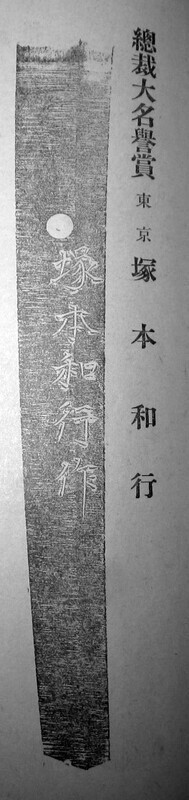 總裁大名譽賞 東京 塚本和行
塚本和行作